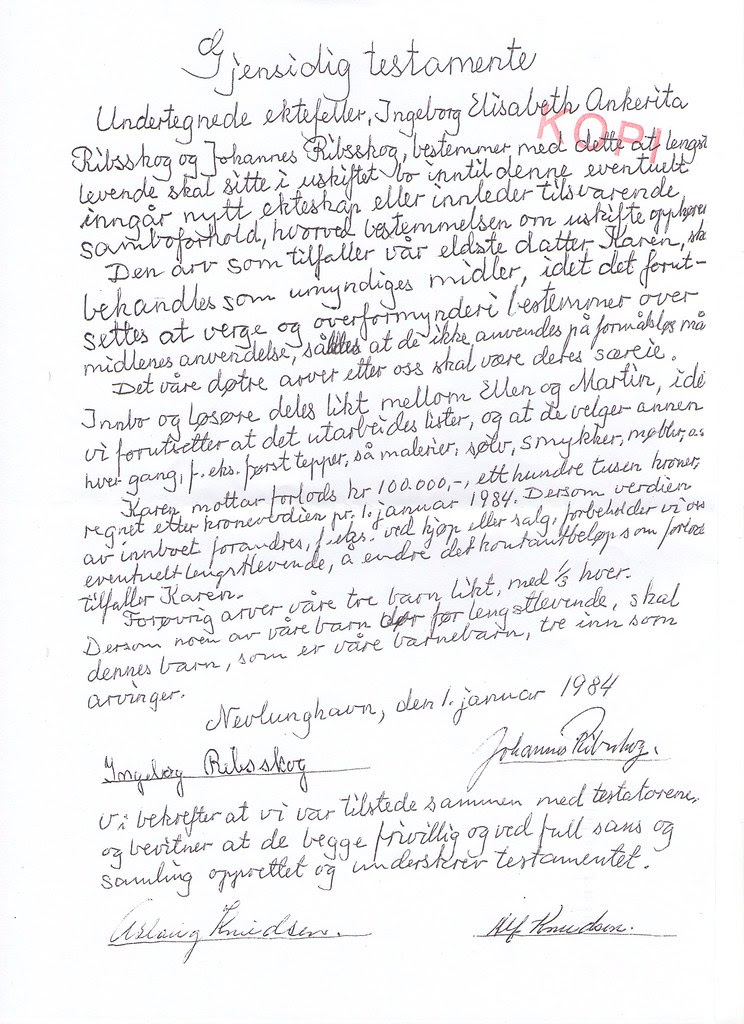 Gjensidig testamente
Undertegnede ektefeller, Ingeborg Elisabeth Ankerita
KOPI
Ribsskog og Johannes Ribsskog, bestemmer med dette at lengst
levende skal sitte i uskiftet bo inntil denne eventuelt
inngår nytt ekteskap eller innleder tilsvarende
samboforhold, hvorved bestemmelsen om uskifte opphører
Den arv som tilfaller vår eldste datter Karen, ska
behandles som umyndiges midler, idet det forut-
settes at verge og overformynderi bestemmer over
midlenes anvendelse, således at de ikke anvendes på formålsløs må
Det våre døtre arver etter oss skal være deres særeie.
Innbo og løsøre deles likt mellom Ellen og Martin, ide
vi forutsetter at det utarbeides lister, og at de velger annen
hver gang, f. eks. først tepper, så malerier, sølv, smykker, møbler, o.s.
Karen mottar forlods kr 100.000,-, ett hundre tusen kroner,
regnet etter kroneverdien pr. 1. januar 1984. Dersom verdien
av innboet forandres, f.eks. ved kjøp eller salg, forbeholder vi oss
eventuelt lengstlevende, å endre det kontantbeløp som forlods
tilfaller Karen.
Forøvrig arver våre tre barn likt, med 1/3 hver.
Dersom noen av våre barn dør før lengstlevende, skal
dennes barn, som er våre barnebarn, tre inn som
arvinger.
Nevlunghavn, den 1. januar 1984
Ingebog Ribsskog
Johannes Ribsskog.
Vi bekrefter at vi var tilstede sammen med testatorene,
og bevitner at de begge frivillig og ved full sans og
samling opprettet og underskrev testamentet.
Aslaug Knudsen.
Alf Knudsen.